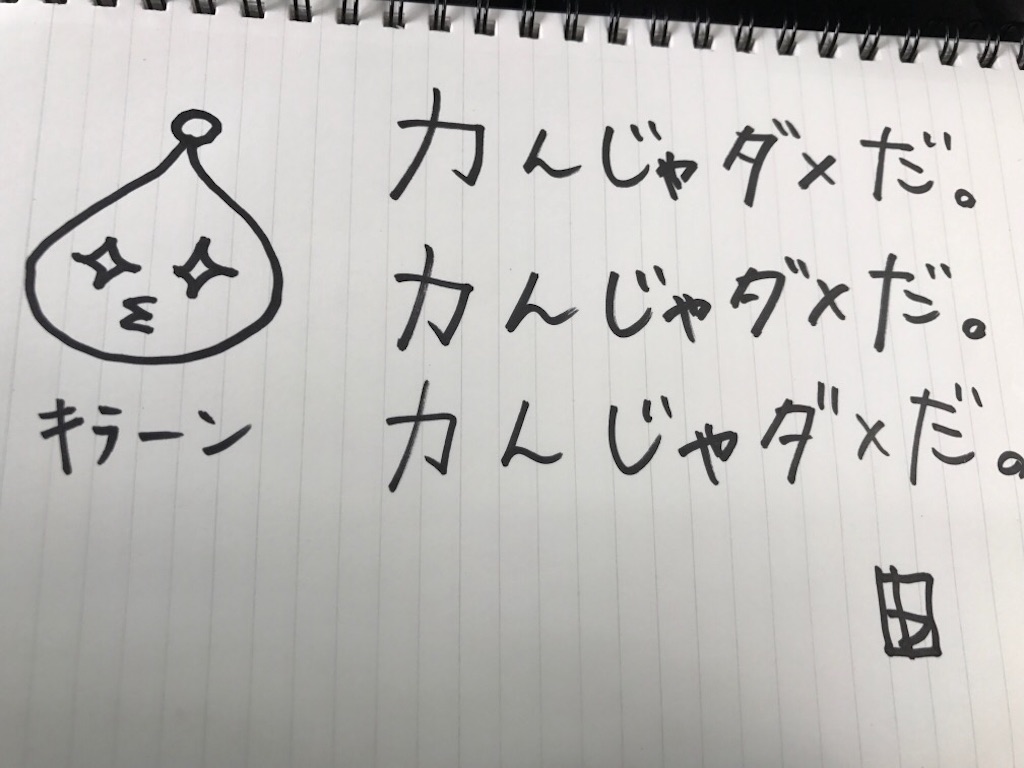 キラーン
力んじゃダメだ。
力んじゃダメだ。
力んじゃダメだ。